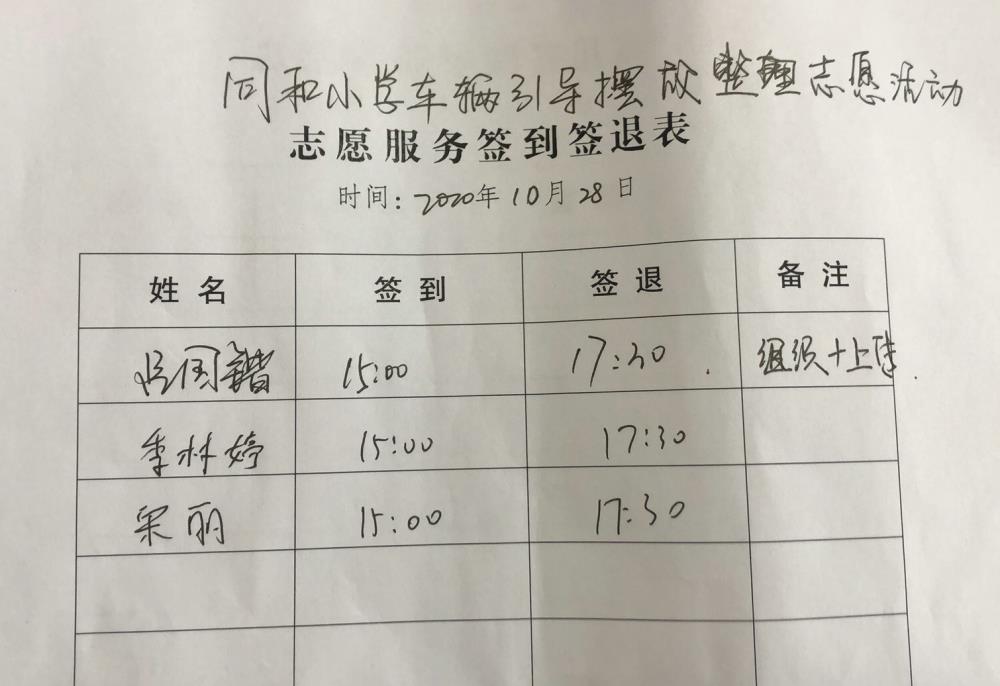 同和小学车辆引导摆放整理志愿活动
志愿服务签到签退表
时间：2020年10月28日
姓名 签到 签退 备注
吕国锴 15:00 17:30 组织+上传
季林婷 15:00 17:30
宋丽 15:00 17:30